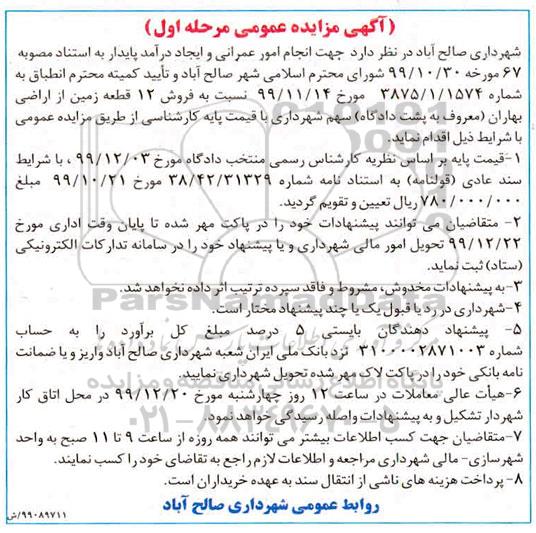 (آگهی مزایده عمومی مرحله اول)
شهرداری صالح آباد در نظر دارد جهت انجام امور عمرانی و ایجاد درآمد پایدار به استناد مصوبه
۶۷ مورخه ۹۹/۱۰/۳۰ شورای محترم اسلامی شهر صالح آباد و تأیید کمیته محترم انطباق به
شماره ۳۸۷۵/۱/۱۵۷۴ مورخ ۹۹/۱۱/۱۴ نسبت به فروش ۱۲ قطعه زمین از اراضی
بهاران (معروف به پشت دادگاه) سهم شهرداری با قیمت پایه کارشناسی از طریق مزایده عمومی
با شرایط ذیل اقدام نماید.
۱-قیمت پایه بر اساس نظریه کارشناس رسمی منتخب دادگاه مورخ ۹۹/۱۲/۰۳ ، با شرایط
سند عادی (قولنامه) به استناد نامه شماره ۳۸/۴۲/۳۱۳۲۹ مورخ ۹۹/۱۰/۲۱ مبلغ
۷۸۰/۰۰۰/۰۰۰ ریال تعیین و تقویم گردید.
۲- متقاضیان می توانند پیشنهادات خود را در پاکت مهر شده تا پایان وقت اداری مورخ
۹۹/۱۲/۲۲ تحویل امور مالی شهرداری و یا پیشنهاد خود را در سامانه تدارکات الکترونیکی
(ستاد) ثبت نماید.
۳-به پیشنهادات مخدوش، مشروط و فاقد سپرده ترتیب اثر داده نخواهد شد.
۴-شهرداری در رد یا قبول یک یا چند پیشنهاد مختار است.
۵- پیشنهاد دهندگان بایستی ۵ درصد مبلغ کل برآورد را به حساب
شماره ۳۱۰۰۰۰۲۸۷۱۰۰۳ نزد بانک ملی ایران شعبه شهرداری صالح آباد واریز و یا ضمانت
نامه بانکی خود را در پاکت لاک مهر شده تحویل شهرداری نمایید.
۶-هیأت عالی معاملات در ساعت ۱۲ روز چهارشنبه مورخ ۹۹/۱۲/۲۰ در محل اتاق کار
شهردار تشکیل و به پیشنهادات واصله رسیدگی خواهد نمود.
۷-متقاضیان جهت کسب اطلاعات بیشتر می توانند همه روزه از ساعت ۹ تا ۱۱ صبح به واحد
شهرسازی- مالی شهرداری مراجعه و اطلاعات لازم راجع به تقاضای خود را کسب نمایند.
۸- پرداخت هزینه های ناشی از انتقال سند به عهده خریداران است.
روابط عمومی شهرداری صالح آباد
۹۹۰۸۹۷۱۱/ش
ParsNamadData
۰۲۱-۸۸۳۴۹۶۷۰-۵